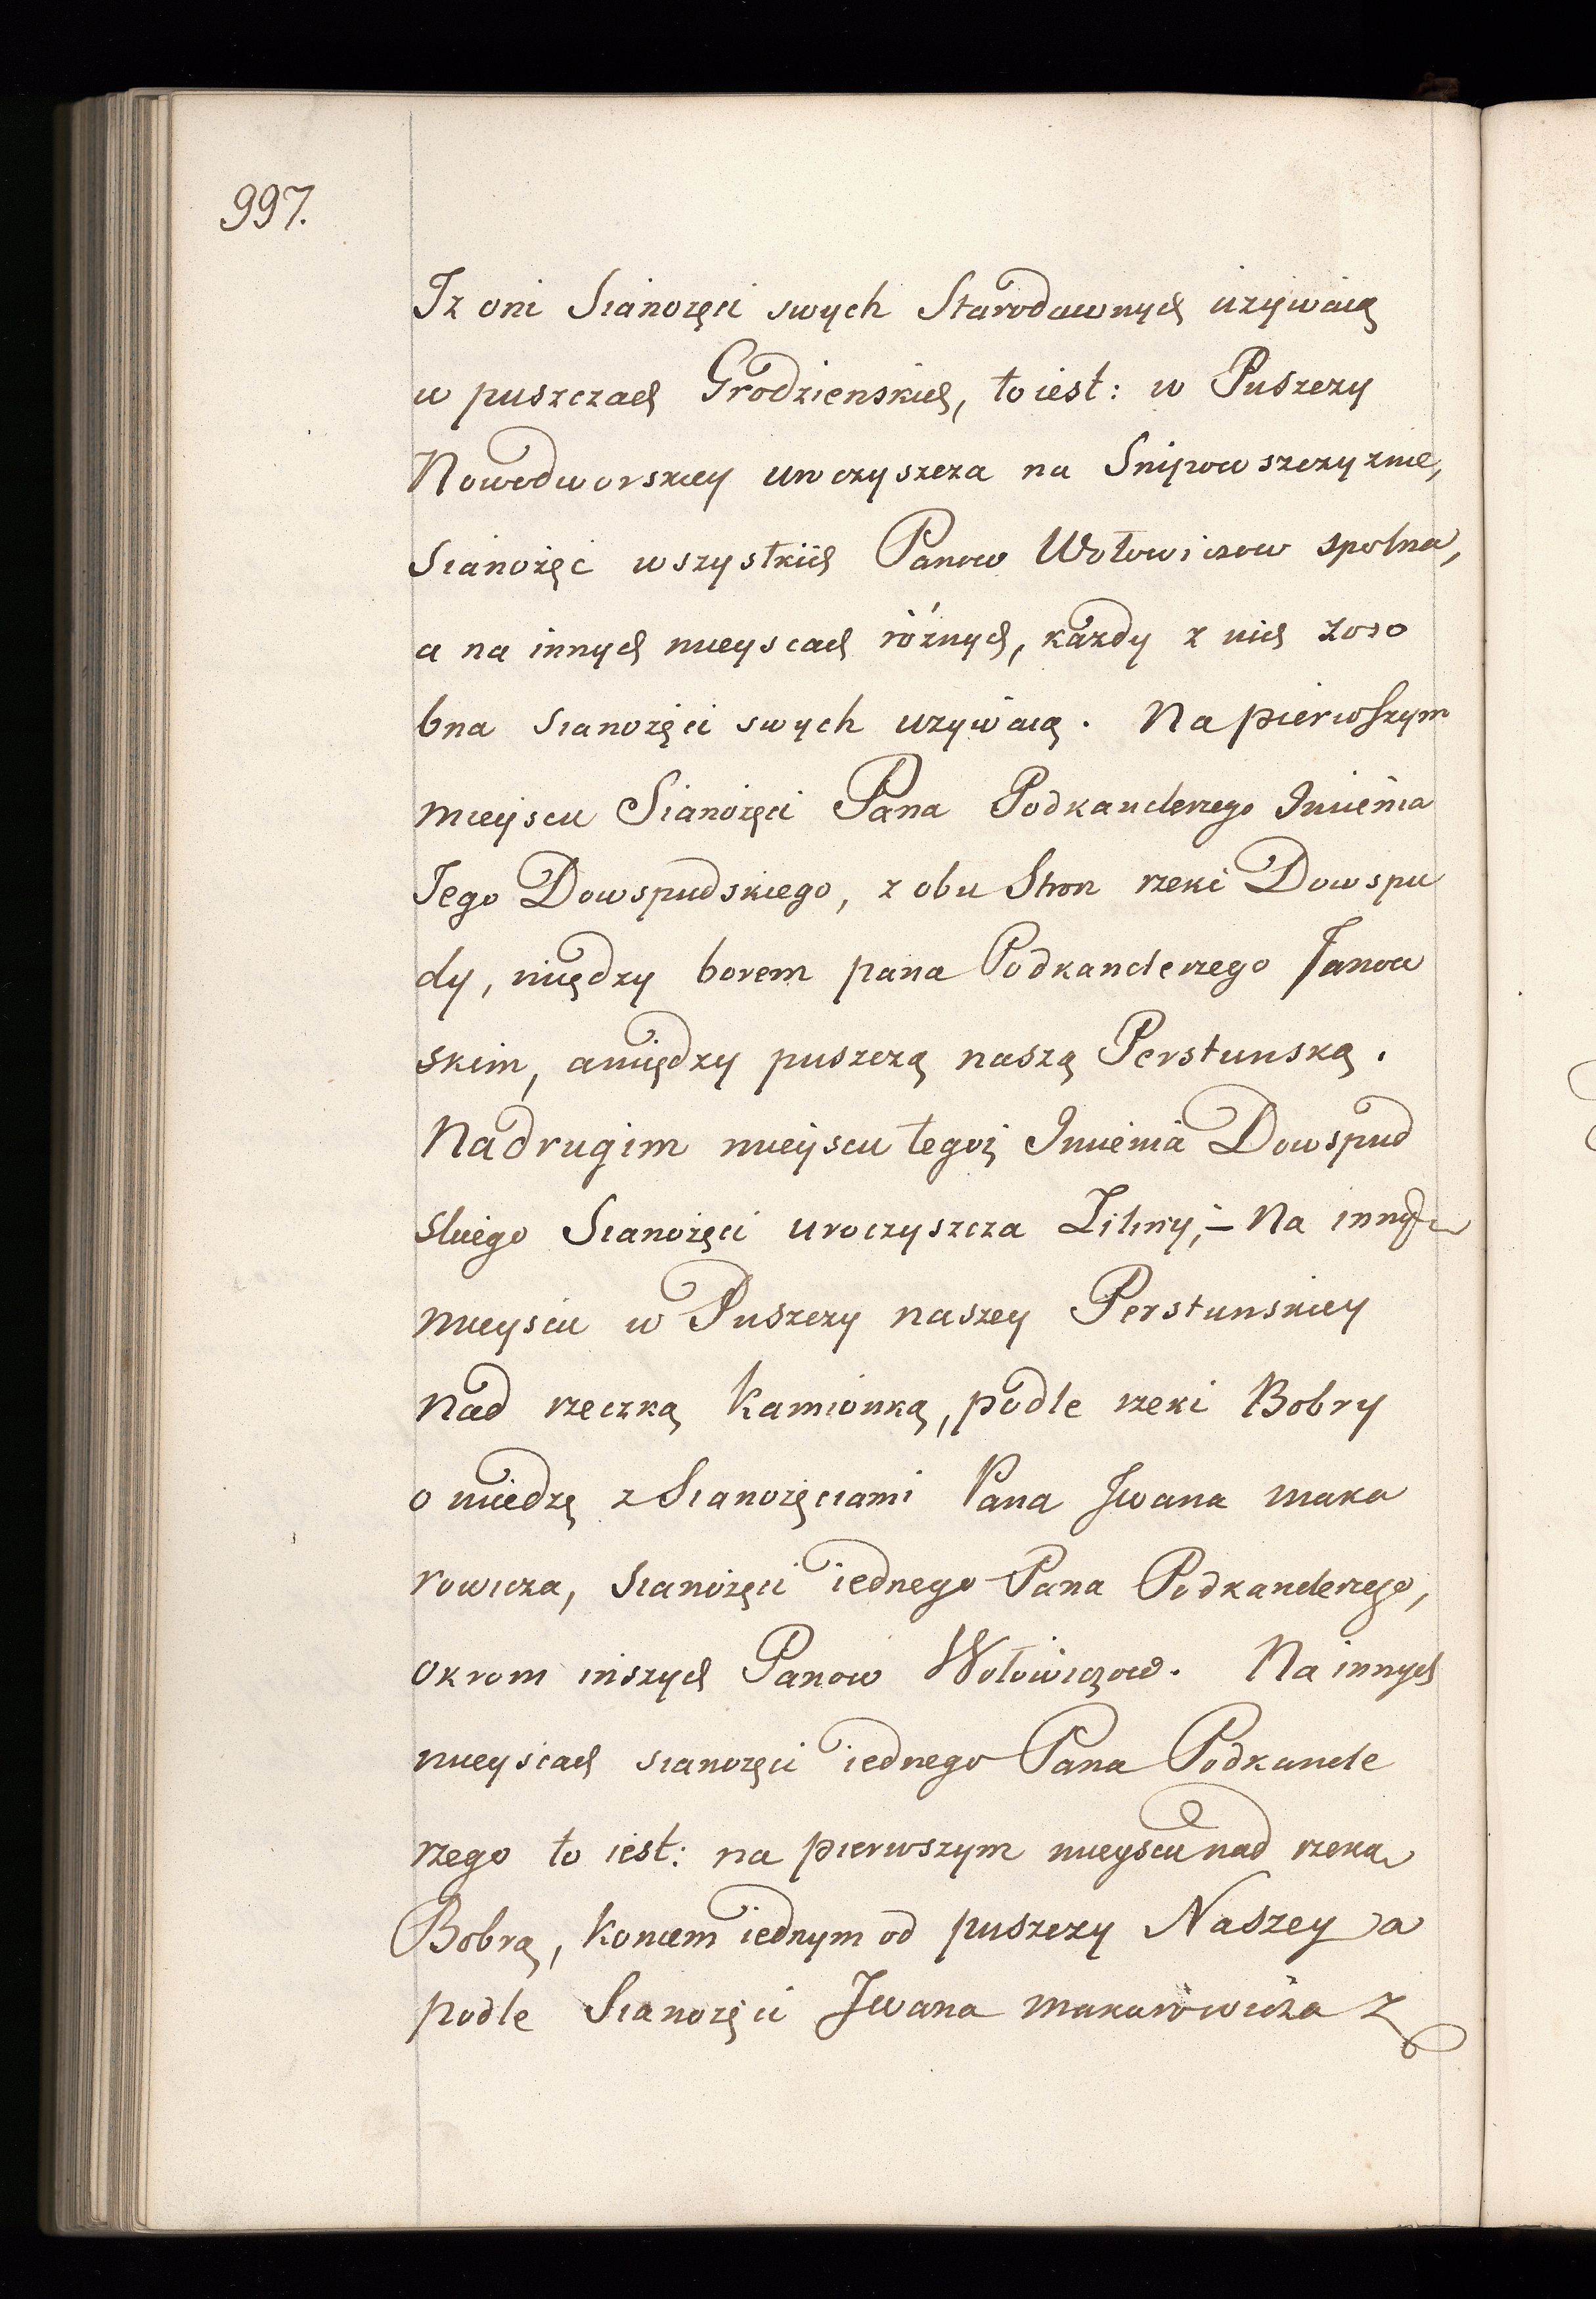 997.
Iz oni Sianozęci swych Starodawnych używaią
w puszczach Grodzienskich, to iest: w Puszczy
Nowodworskiey uroczyszcza na Snipowszczyznie,
Sianożęć wszystkiich Panow Wołowiczow spolna,
a na innych mieyscach różnych, każdy z nich zoso
bna sianożęci swych używaią. Na pierwszym
mieyscu Sianożęci Pana Podkanclerzego Imienia
Jego Dowspudskiego, z obu Stron rzeki Dowspu
dy, między borem pana Podkanclerzego Janow
skim, a między puszczą naszą Perstunską.
Na drugim mieyscu tegoż Imienia Dowspud
skiego Sianożęci uroczyszcza Liliny, – Na innym
mieyscu w Puszczy naszey Perstunskiey
nad rzeczką Kamionką, podle rzeki Bobry
o miedzę z Sianożęciami Pana Iwana maka
rowicza, Sianożęci iednego Pana Podkanclerzego,
okrom inszych Panow Wołowiczow. Na innych
mieyscach sianozęci iednego Pana Podkancle
rzego to iest: na pierwszym mieyscu nad rzeka
Bobrą, koncem iednym od puszczy Naszey a
podle Sianozęci Iwana makarowicza z